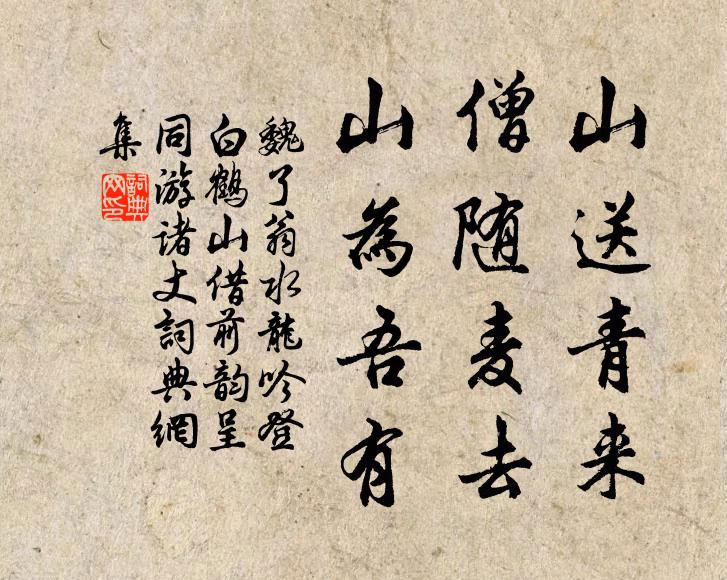 山送青来
僧随麦去
山為吾有
魏了翁水龍吟登
白鶴山借前韵呈
同游诸丈詞典網
集
詞典网印